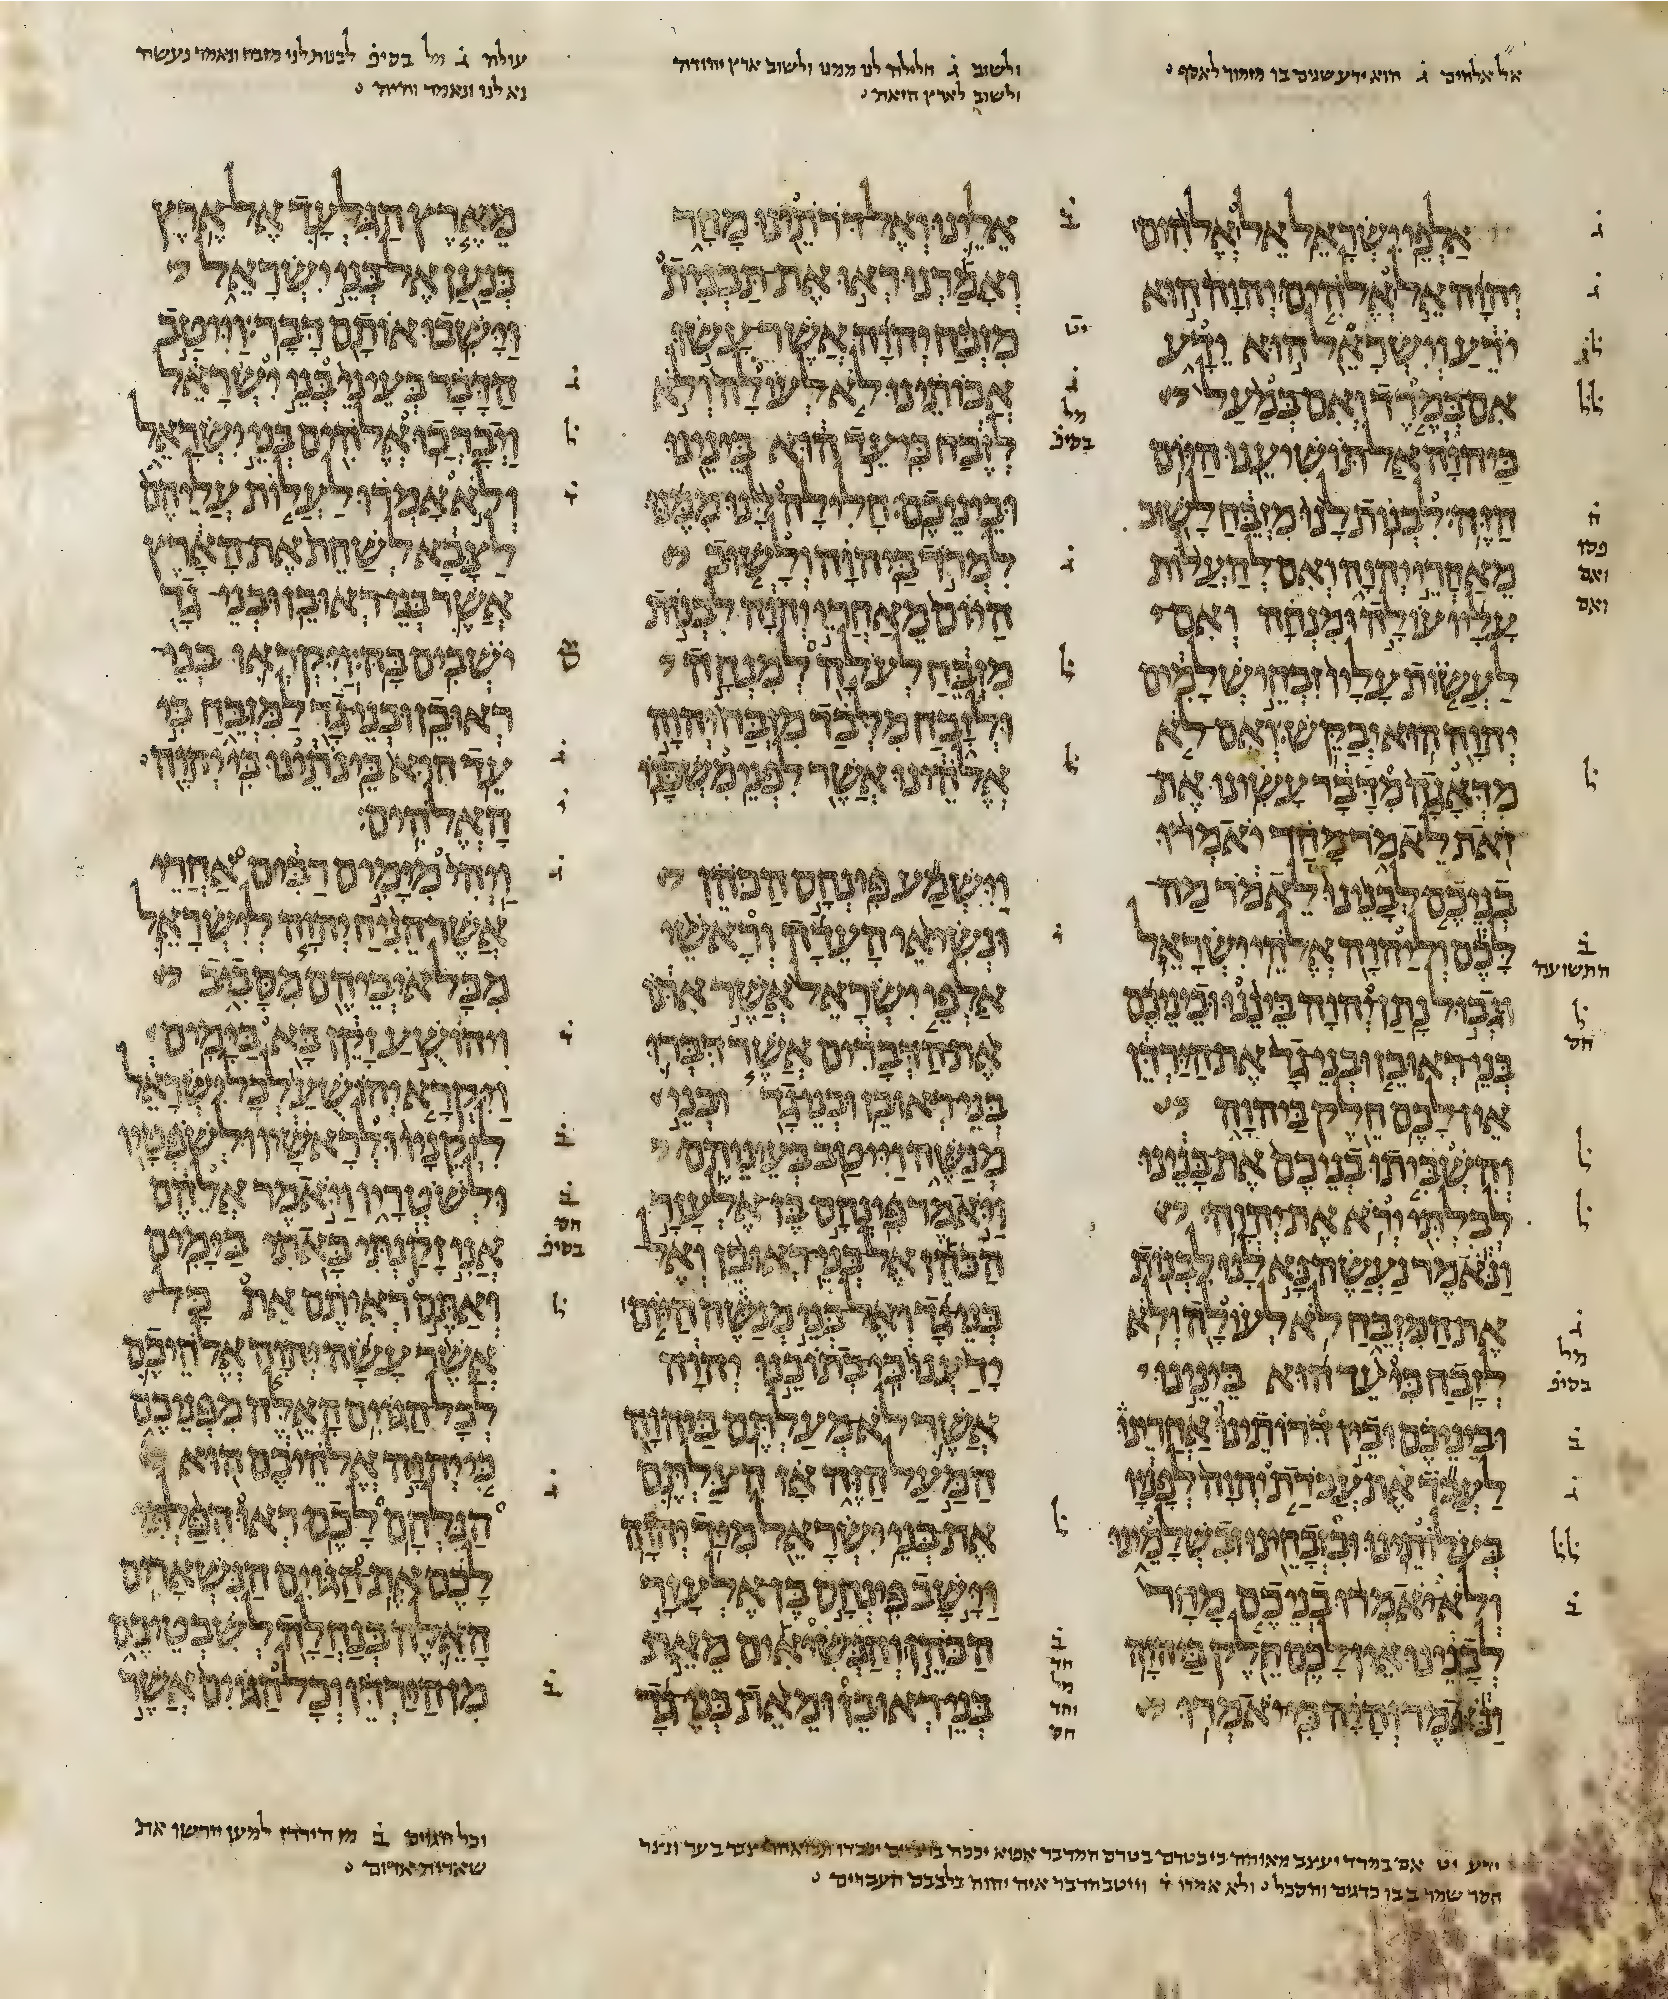 אל אלהים ג הוא ידע שנים בו מזמור לאסף
אלפי ישראל אל אלהים
יהוה אל אלהים יהוה הוא
ידע וישראל הוא ידע
אם במרד ואם במעל
ביהוה אל תושיענו היום
הזה לבנות לנו מזבח לשוב
מאחרי יהוה ואם להעלות
עליו עולה ומנחה ואם
לעשות עליו זבחי שלמים
יהוה הוא יבקש ואם לא
מדאגה מדבר עשינו את
זאת לאמר מחר יאמרו
בניכם לבנינו לאמר מה
לכם וליהוה אלהי ישראל
וגבול נתן יהוה בינינו וביניכם
בני ראובן ובני גד את הירדן
אין לכם חלק ביהוה
והשביתו בניכם את בנינו
לבלתי ירא את יהוה
ונאמר נעשה נא לנו לבנות
את המזבח לא לעולה ולא
לזבח כי עד הוא בינינו
וביניכם ובין דרותינו אחרינו
לעבד את עבדת יהוה לפניו
בעלותינו ובזבחינו ובשלמינו
ולא יאמרו בניכם מחר
לבנינו אין לכם חלק ביהוה
ונאמר והיה כי יאמרו
ולשוב ג חלילה לנו ממנו ולשוב ארץ יהודה
ולשוב לארץ הזאת
אלינו ואל דרתינו מחר
ואמרנו ראו את תבנית
מזבח יהוה אשר עשו
אבותינו לא לעולה ולא
לזבח כי עד הוא בינינו
וביניכם חלילה לנו ממנו
למרד ביהוה ולשוב
היום מאחרי יהוה לבנות
מזבח לעלה למנחה
ולזבח מלבד מזבח יהוה
אלהינו אשר לפני משכנו
וישמע פינחס הכהן
ונשיאי העדה וראשי
אלפי ישראל אשר אתו
את הדברים אשר דברו
בני ראובן ובני גד ובני
מנשה וייטב בעיניהם
ויאמר פינחס בן אלעזר
הכהן אל בני ראובן ואל
בני גד ואל בני מנשה היום
ידענו כי בתוכנו יהוה
אשר לא מעלתם ביהוה
המעל הזה אז הצלתם
את בני ישראל מיד יהוה
וישב פינחס בן אלעזר
הכהן והנשיאים מאת
בני ראובן ומאת בני גד
עולה ג מל בסיפ לבנות לנו מזבח ונאמר נעשה
נא לנו ונאמר והיה
מארץ הגלעד אל ארץ
כנען אל בני ישראל
וישבו אותם דבר וייטב
הדבר בעיני בני ישראל
ויברכו אלהים בני ישראל
ולא אמרו לעלות עליהם
לצבא לשחת את הארץ
אשר בני ראובן ובני גד
ישבים בה ויקראו בני
ראובן ובני גד למזבח כי
עד הוא בינתינו כי יהוה
האלהים
ויהי מימים רבים אחרי
אשר הניח יהוה לישראל
מכל איביהם מסביב
ויהושע זקן בא בימים
ויקרא יהושע לכל ישראל
לזקניו ולראשיו ולשפטיו
ולשטריו ויאמר אלהם
אני זקנתי באתי בימים
ואתם ראיתם את כל
אשר עשה יהוה אלהיכם
לכל הגוים האלה מפניכם
כי יהוה אלהיכם הוא
הנלחם לכם ראו הפלתי
לכם את הגוים הנשארים
האלה בנחלה לשבטיכם
מן הירדן וכל הגוים אשר
וכל הגוים ב מן הירדן למען יירשו את
שארית אדום